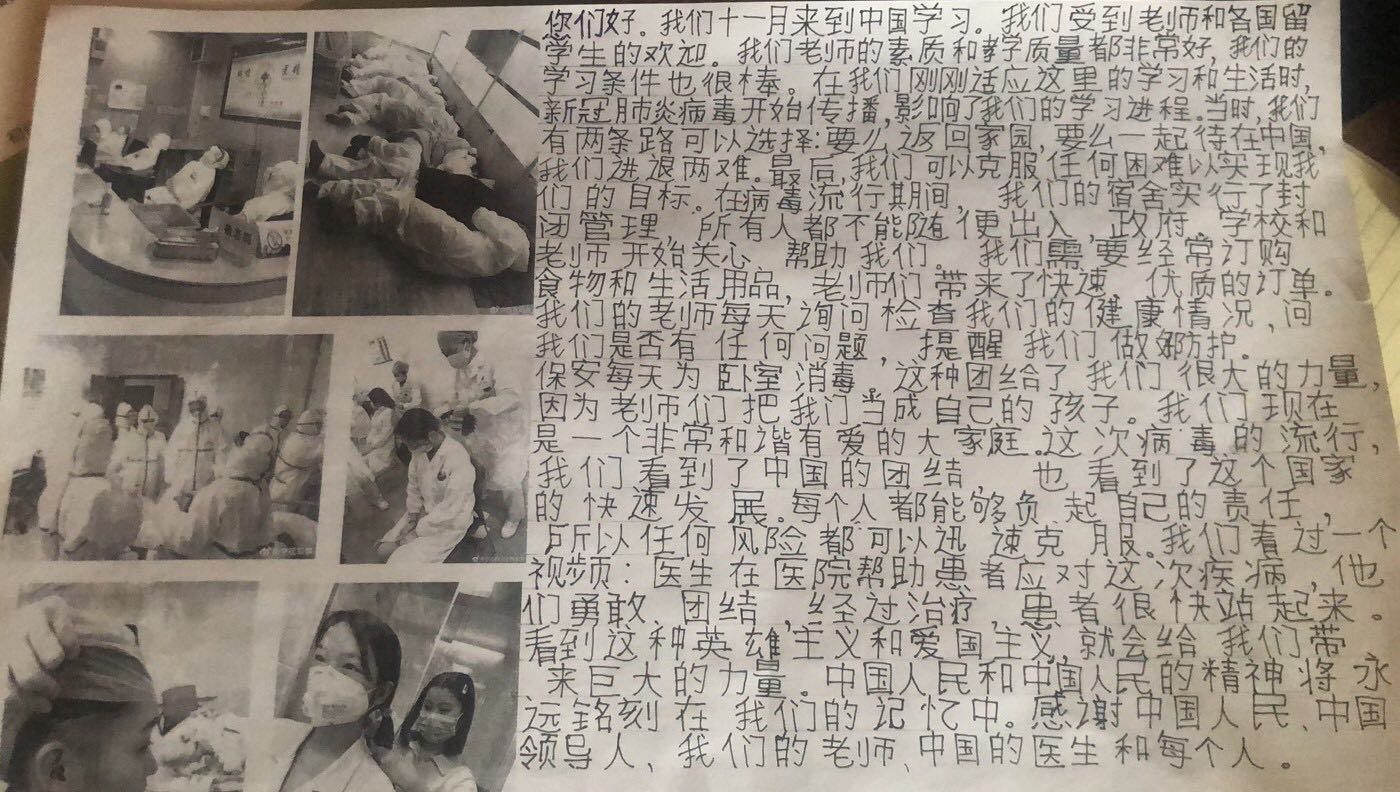 您们好。我们十一月来到中国学习。我们受到老师和各国留
学生的欢迎。我们老师的素质和教学质量都非常好,我们的
学习条件也很棒。在我们刚刚适应这里的学习和生活时,
新冠肺炎病毒开始传播,影响了我们的学习进程。当时,我们
有两条路可以选择:要么返回家园,要么一起待在中国,
我们进退两难。最后,我们可以克服任何困难以实现我
们的目标。在病毒流行期间,我们的宿舍实行了封
闭管理,所有人都不能随便出入,政府、学校和
老师开始关心、帮助我们。我们需要经常订购
食物和生活用品,老师们带来了快速、优质的订单。
我们的老师每天询问检查我们的健康情况,问
我们是否有任何问题,提醒我们做好防护。
保安每天为卧室消毒。这种团给了我们很大的力量,
因为老师们把我们当成自己的孩子。我们现在
是一个非常和谐有爱的大家庭。这次病毒的流行,
我们看到了中国的团结,也看到了这个国家
的快速发展。每个人都能够负起自己的责任,
所以任何风险都可以迅速克服。我们看过一个
视频:医生在医院帮助患者应对这次疾病,他
们勇敢、团结,经过治疗,患者很快站起来。
看到这种英雄主义和爱国主义,就会给我们带
来巨大的力量。中国人民和中国人民的精神将永
远铭刻在我们的记忆中。感谢中国人民、中国
领导人、我们的老师、中国的医生和每个人。